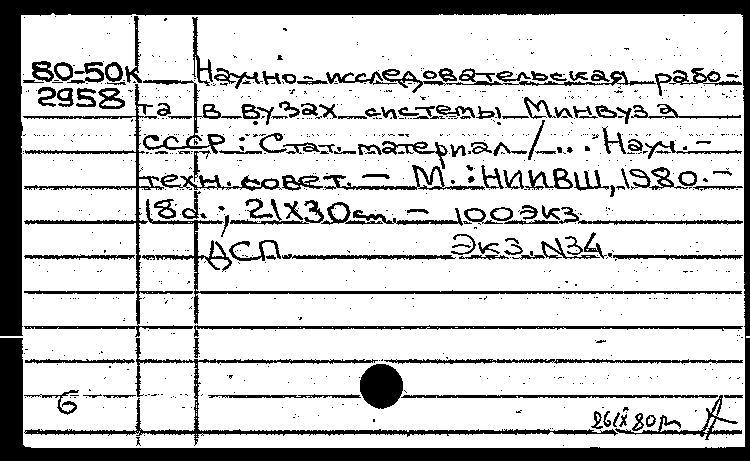 80-50к Научно-исследовательская рабо-
2958 та в вузах системы Минвуза
СССР: Стат. материал / ... Науч.-
техн. совет. — М.: НИИВШ, 1980. —
18 с.; 21х30 см. — 100 экз.
ДСП. Экз. N34.
6